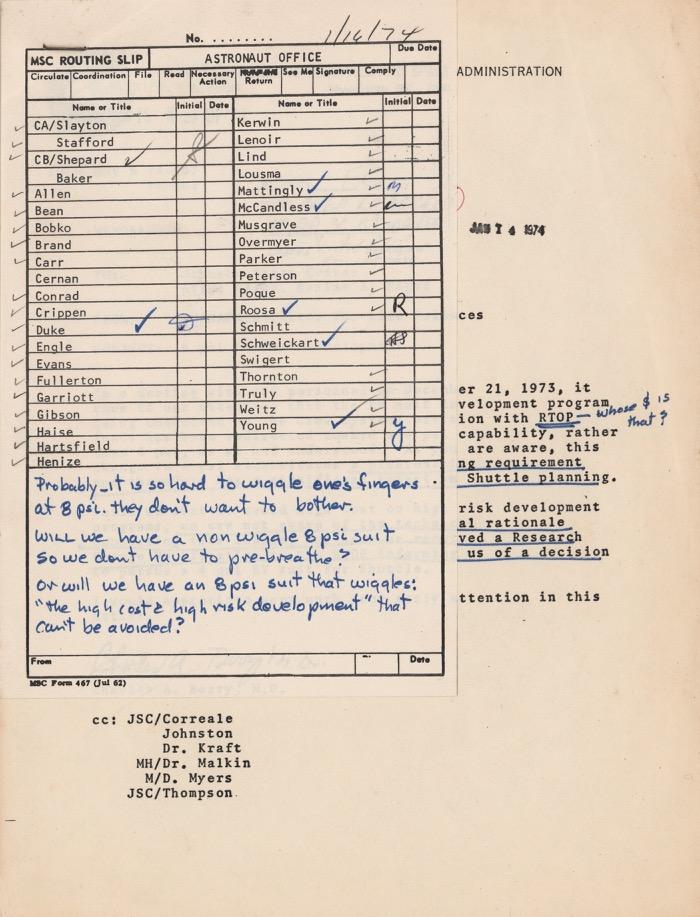 No. ........ 1/16/74
MSC ROUTING SLIP ASTRONAUT OFFICE Due Date
Circulate Coordination File Read Necessary Action Return See Me Signature Comply
Name or Title Initial Date Name or Title Initial Date
CA/Slayton Kerwin
Stafford Lenoir
CB/Shepard Lind
Baker Lousma
Allen Mattingly m
Bean McCandless
Bobko Musgrave
Brand Overmyer
Carr Parker
Cernan Peterson
Conrad Pogue
Crippen Roosa R
Duke Schmitt
Engle Schweickart
Evans Swigert
Fullerton Thornton
Garriott Truly
Gibson Weitz
Haise Young y
Hartsfield
Henize
Probably - it is so hard to wiggle one's fingers
at 8 psi. they don't want to bother.
Will we have a non wiggle 8 psi suit
so we don't have to pre-breathe?
Or will we have an 8 psi suit that wiggles:
"the high cost & high risk development" that
can't be avoided?
From Date
MSC Form 467 (Jul 62)
ADMINISTRATION
JAN 14 1974
ces
er 21, 1973, it
velopment program
ion with RTOP — whose $ is that?
capability, rather
are aware, this
ng requirement
Shuttle planning.
risk development
al rationale
ved a Research
us of a decision
ttention in this
cc: JSC/Correale
Johnston
Dr. Kraft
MH/Dr. Malkin
M/D. Myers
JSC/Thompson